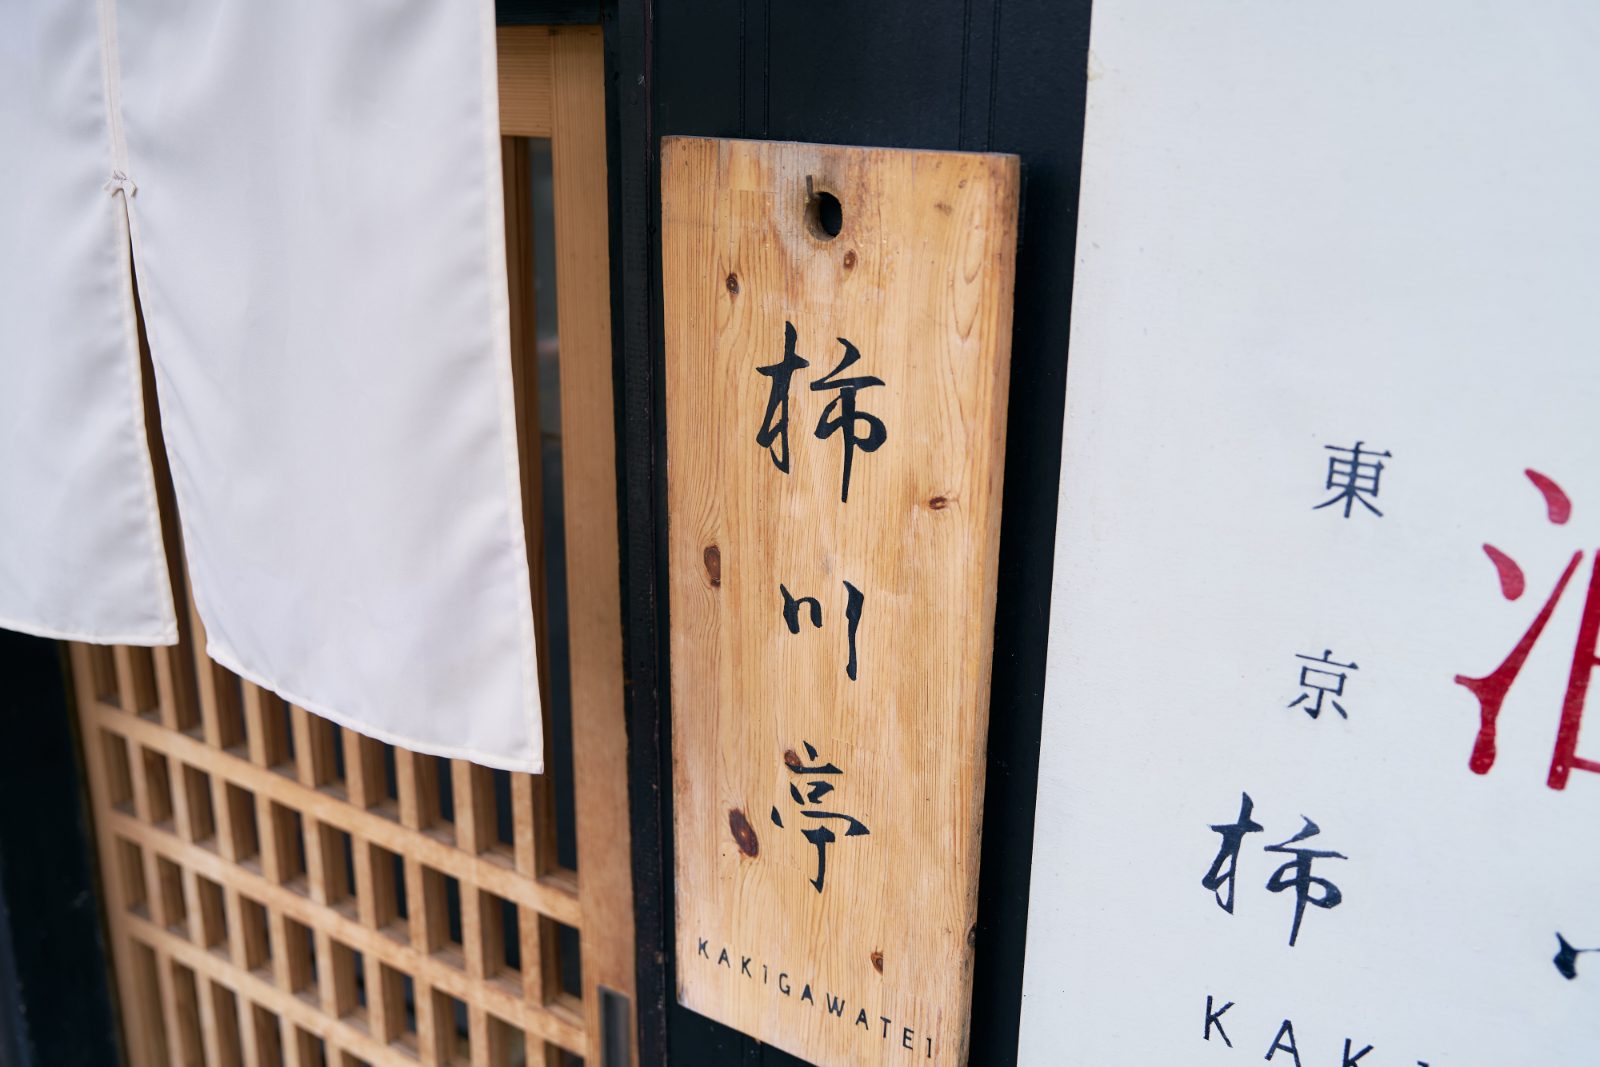 柿川亭
KAKIGAWATEI
東京
柿
KAK